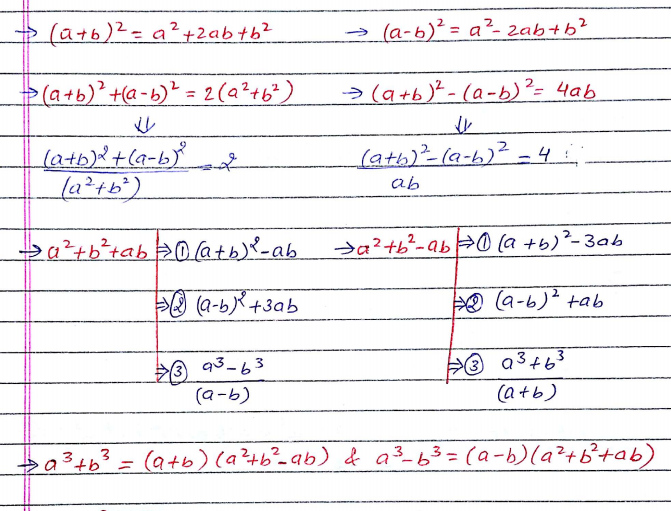 → (a+b)² = a²+2ab+b² → (a-b)² = a²-2ab+b²
→ (a+b)²+(a-b)² = 2(a²+b²) → (a+b)²-(a-b)² = 4ab
⇓ ⇓
(a+b)²+(a-b)² / (a²+b²) = 2 (a+b)²-(a-b)² / ab = 4
→ a²+b²+ab ⇒ ① (a+b)²-ab → a²+b²-ab ⇒ ① (a+b)²-3ab
⇒ ② (a-b)²+3ab ⇒ ② (a-b)²+ab
⇒ ③ a³-b³ / (a-b) ⇒ ③ a³+b³ / (a+b)
→ a³+b³ = (a+b)(a²+b²-ab) & a³-b³ = (a-b)(a²+b²+ab)